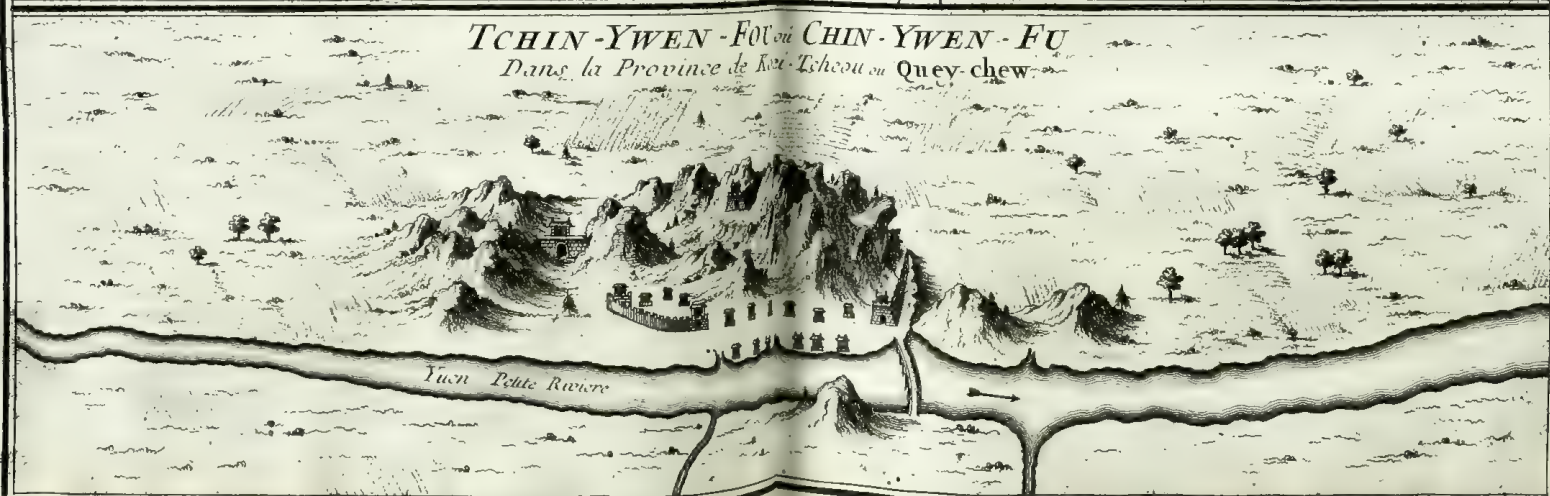 TCHIN-YWEN-FOU ou CHIN-YWEN-FU
Dans la Province de Koei-Tcheou ou Quey-chew.
Yuen Petite Riviere